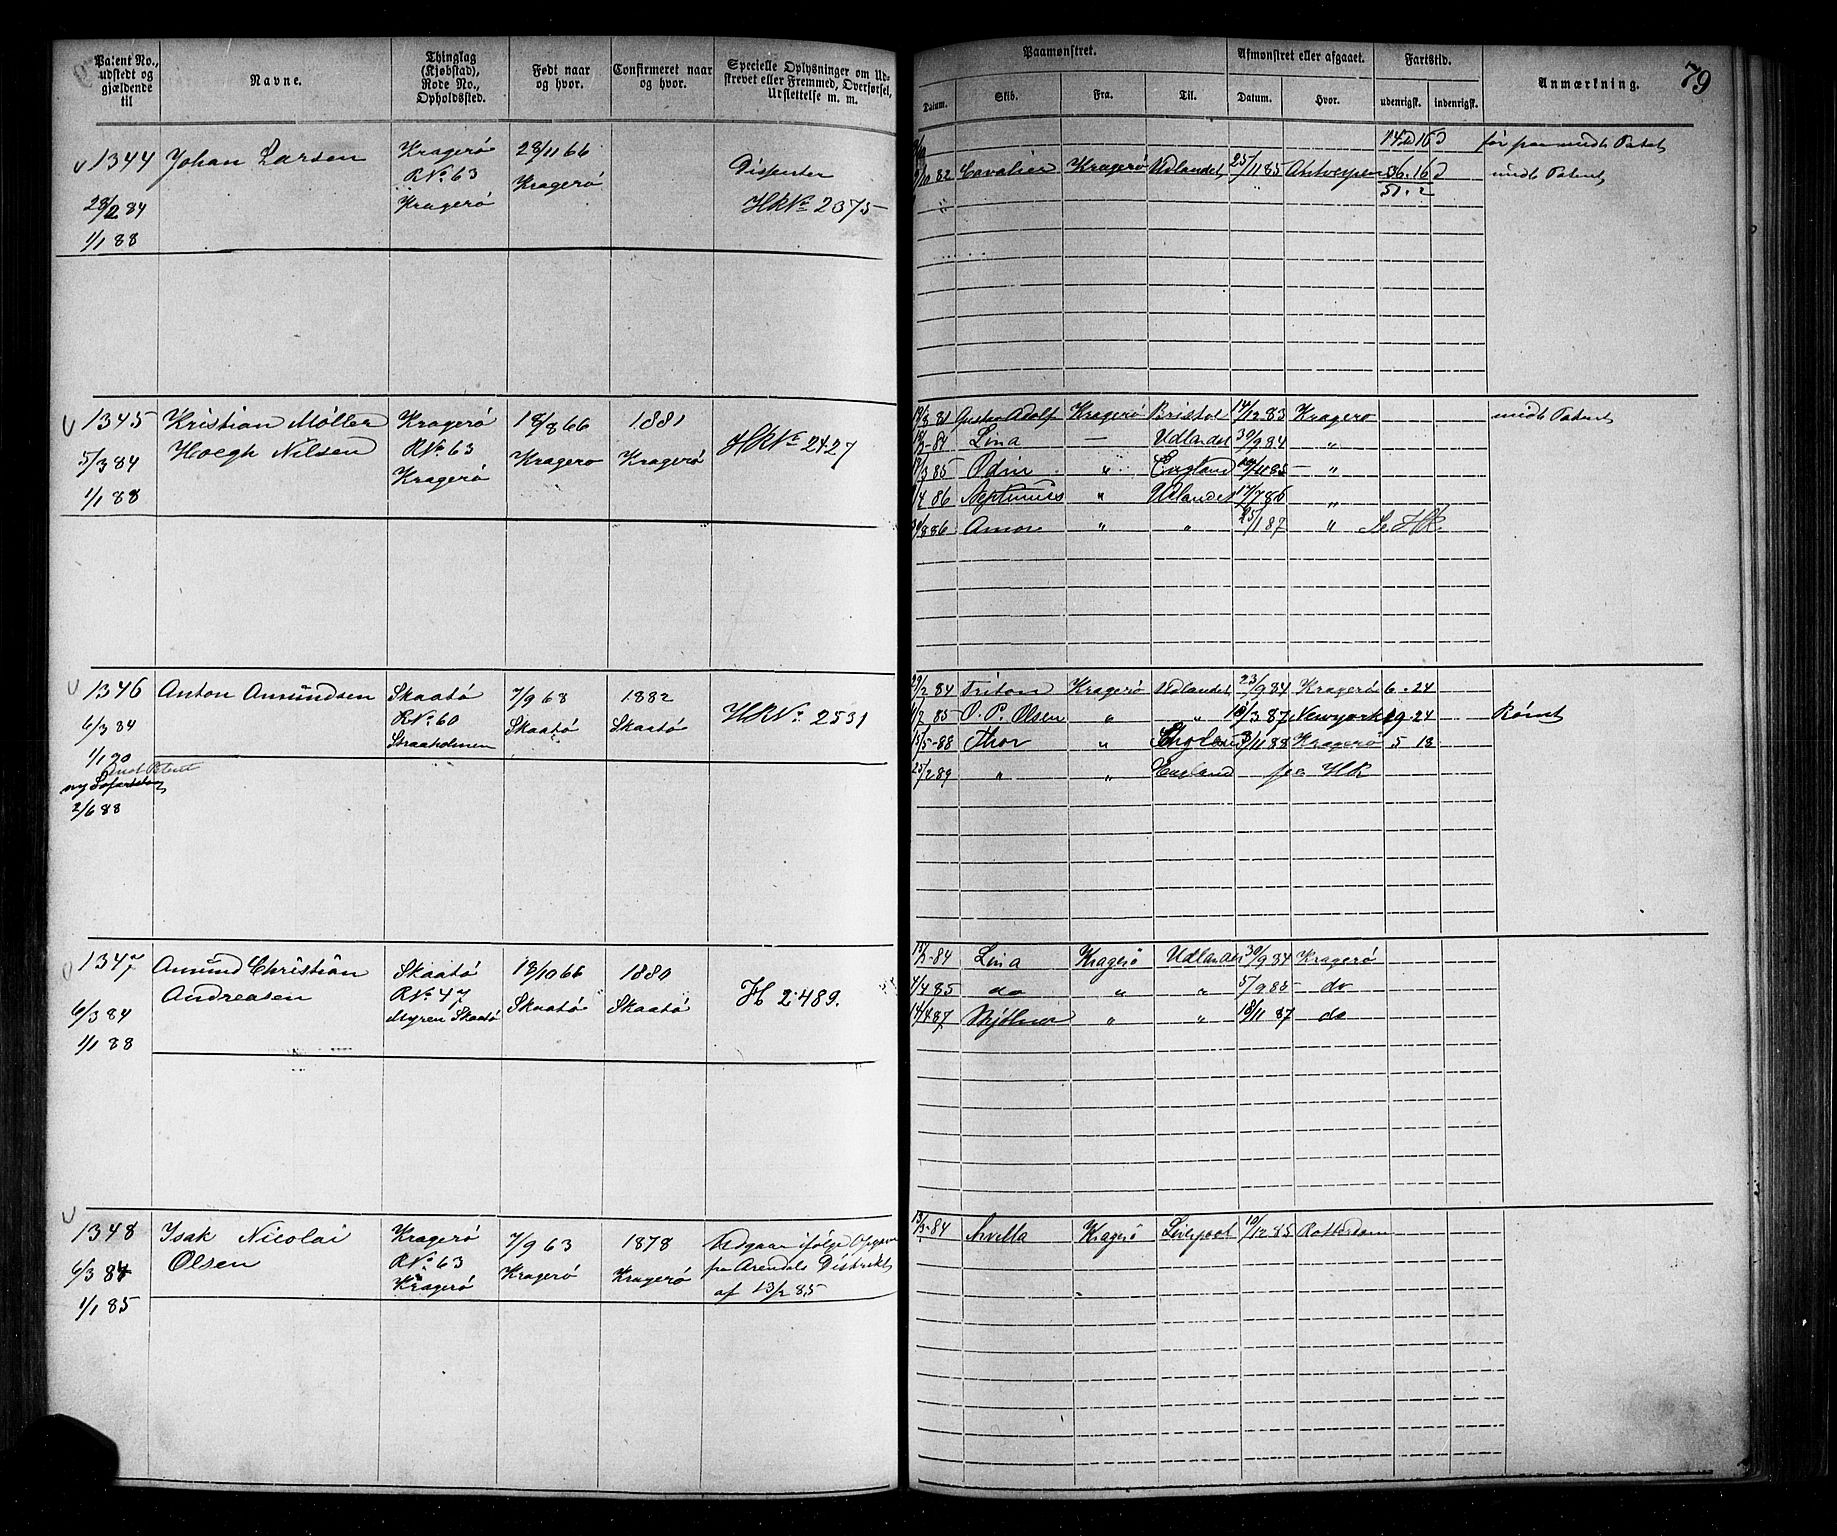 79
Patent No., udstedt og gjældende til
Navne.
Thinglag (Kjøbstad), Rode No., Opholdssted.
Født naar og hvor.
Confirmeret naar og hvor.
Specielle Oplysninger om Udstrevet eller Fremmed, Overførsel, Udslettelse m. m.
Paamønstret.
Afmønstret eller afgaaet.
Fartstid.
Anmærkning.
Datum.
Skib.
Fra.
Til.
Datum.
Hvor.
udenrigsk.
indenrigsk.
1344
Johan Larsen
Kragerø
28/11 66
RNo 63
Kragerø
Dispenter
Kragerø
HRNo 2375
28/2 84
1/1 88
før paa midt Patent
82 Cavalier Kragerø Udlandet 25/11 85 Antwerpen 36.16 midt Patent
51.2
1345
Kristian Møller
Kragerø
18/8 66
1881
Hoegh Nilsen
RNo 63
Kragerø
Kragerø
HRNo 2427
5/3 84
Kragerø
1/1 88
Gustav Adolf Kragerø Bristol 17/12 83 Kragerø midt Patent
84 Lina — Udlandet 30/9 84 "
85 Odin " England "
86 Neptunus " Udlandet 17/7 86 "
86 Amor " " 25/1 87 " Se HR.
1346
Anton Amundsen
Skaatø
7/9 68
1882
RNo 60
Skaatø
Skaatø
HRNo. 2531
6/3 84
Straaholmen
1/1 90
2/6 88
29/2 84 Triton Kragerø Udlandet 23/9 84 Kragerø 6.24
85 O. P. Olsen " " 87 Newyork 24 Rømt
15/5-88 Thor " 88 Kragerø 5 18
25/2 89 " " England HR
1347
Amund Christian
Skaatø
18/10 66
1880
Andreasen
RNo 47
Skaatø
Skaatø
H 2489.
6/3 84
Myren Skaatø
1/1 88
84 Lina Kragerø Udlandet 30/9 84 Kragerø
7/4 85 do " " 5/9 85 do
14/4 87 " " 18/11 87 do
1348
Isak Nicolai
Kragerø
7/9 63
1878
Udgaar ifølge Opgave
Olsen
RNo 63
Kragerø
Kragerø
fra Arendals Distrikt
6/3 84
Kragerø
af 13/2 85
1/1 85
84 Arvilla Kragerø Liverpool 10/12 85 Rotterdam